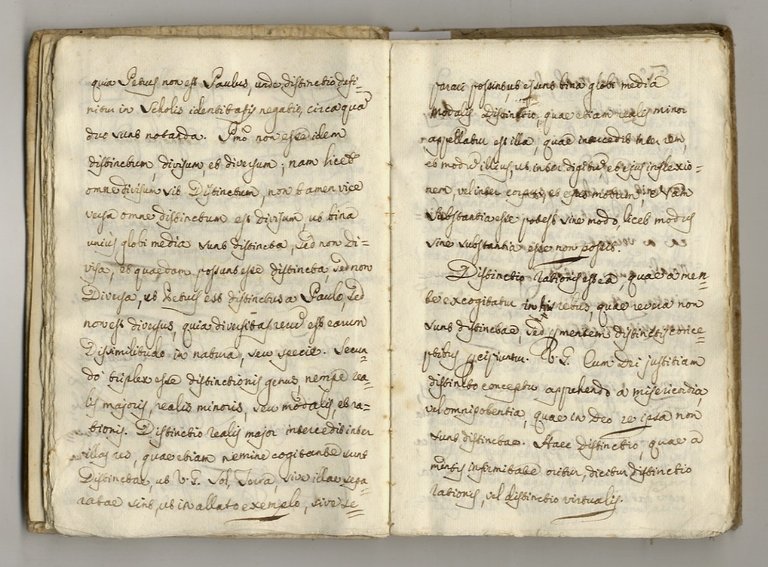 quia Petrus non est Paulus, unde distinctio defi-
nitur in Scholis identitatis negatio, circa quā
duo sunt notanda. Pmo non esse idem
distinctum, divisum, et diversum; nam licet
omne divisum sit Distinctum, non tamen vice
versa omne distinctum est Divisum, ut bina
unius globi media sunt distincta, sed non Di=
visa, et quaedam possunt esse distincta, sed non
Diversa, ut Petrus est distinctus a Paulo, sed
non est diversus, quia diversitas rerū est earum
Dissimilitudo in natura, seu specie. Secun=
do triplex esse distinctionis genus nempe rea=
lis majoris, realis minoris, seu modalis, et ra=
tionis. Distinctio realis major intercedit inter
illas res, quae etiam nemine cogitante sunt
Distinctae, ut V. G. Sol, Terra, sive illae sepa=
ratae sint, ut in allato exemplo, sive se=
parari possint ut sunt bina globi media
Modalis Distinctio, quae etiam realis minor
appellatur est illa, quae intercedit inter rem,
et modū illius, ut inter digitū et ejus inflexio=
nem, vel inter corpus, et ejus motum; nam
substantia esse potest sine modo, licet modus
sine substantia esse non possit.
Distinctio rationis est ea, quae a men=
te excogitatur in his rebus, quae re ipsa non
sunt distinctae, sed mentem distinctis
V. G. Cum Dei justitiam
distincto conceptu apprehendo a misericordia
vel omnipotentia, quae in Deo re ipsa non
sunt distinctae. Haec Distinctio, quae a
mentis infirmitate oritur, dicitur Distinctio
rationis, vel distinctio virtualis.